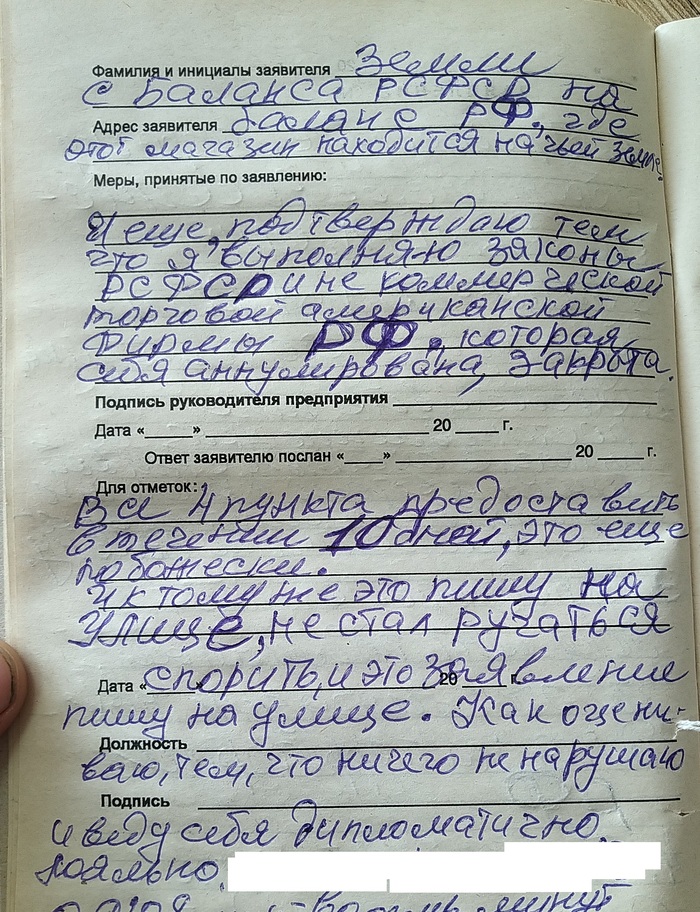 Фамилия и инициалы заявителя Земли
с баланса РСФСР на
Адрес заявителя баланс РФ, где
этот магазин находится на чьей земле?
Меры, принятые по заявлению:
И еще, подтверждаю тем
что я, выполняю законы
РСФСР и не коммерческой
торговой американской
фирмы РФ, которая
себя аннулирована, закрыта.
Подпись руководителя предприятия
Дата «____» 20 ____ г.
Ответ заявителю послан «____» 20 ____ г.
Для отметок:
Все 4 пункта предоставить
в течении 10 дней, это еще
по божески.
И к тому же это пишу на
улице, не стал ругаться
Дата « спорить, и это заявление 20 г.
пишу на улице. Как оцени-
Должность
ваю, тем, что ничего не нарушаю
Подпись
и веду себя дипломатично,
лояльно.
минут